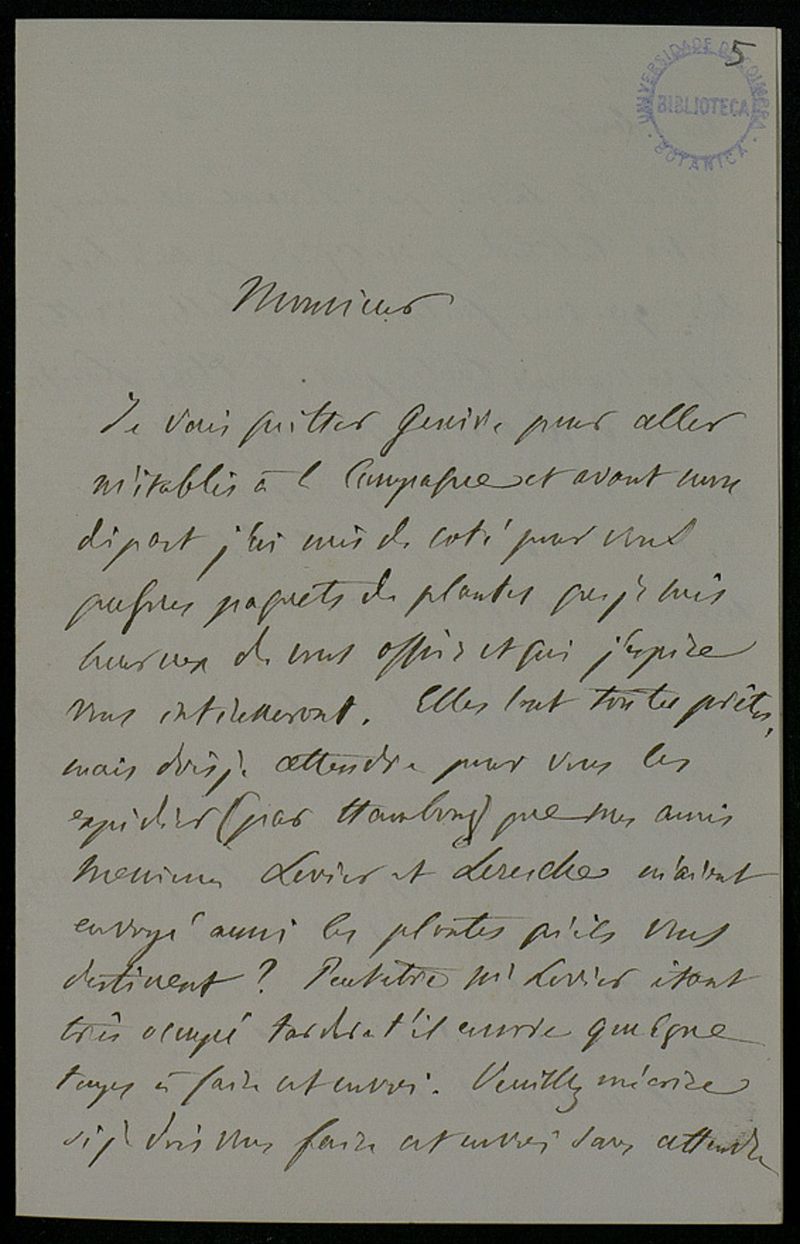 5
UNIVERSIDADE DE COIMBRA
BIBLIOTECA
BOTANICA
Monsieur
Je vais quitter Genève pour aller
m'établir à la Campagne et avant mon
départ j'ai mis de coté pour vous
quelques paquets de plantes que je suis
heureux de vous offrir et qui j'espère
vous intéresseront. Elles sont toutes prêtes,
mais dois je attendre pour vous les
expédier (par Hambourg) que mes amis
Messieurs Levier et Leresche m'aient
envoyé aussi les plantes qu'ils vous
destinent ? Peutetre Mr Levier étant
très occupé tardera t'il encore quelque
temps à faire cet envoi. Veuillez m'écrire
si je dois vous faire cet envoi sans attendre